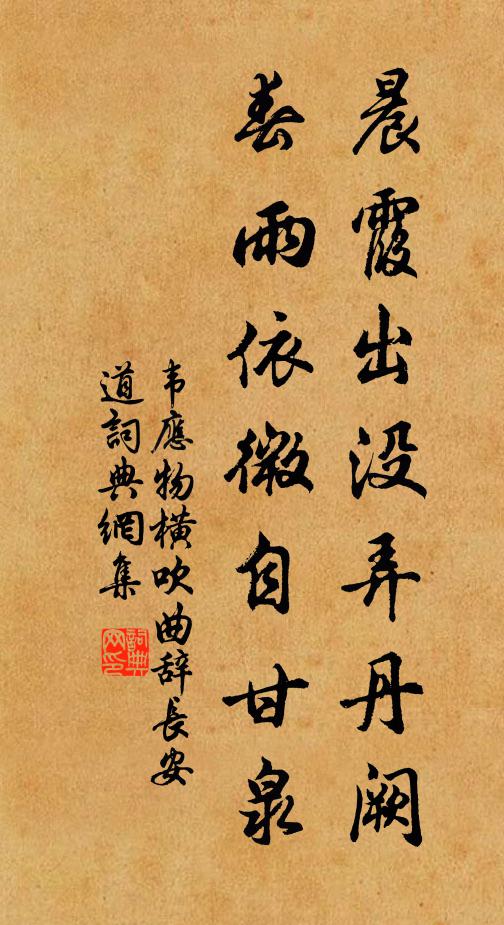 晨霞出没弄丹阙
春雨依微自甘泉
韦應物橫吹曲辞長安
道詞典網集
詞典网印